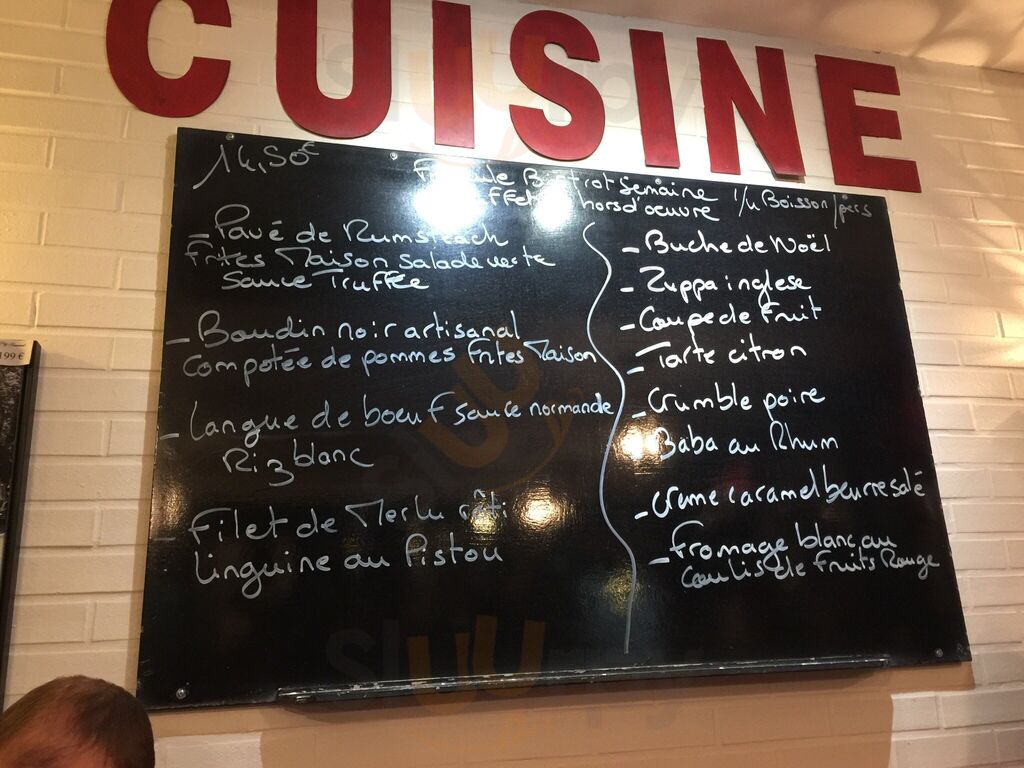 CUISINE
14,50€
Semaine
hors d'oeuvre 1/4 Boisson/pers
- Pavé de Rumsteack
Frites Maison salade verte
Sauce Truffée
- Boudin noir artisanal
Compotée de pommes Frites Maison
- Langue de boeuf sauce normande
Riz blanc
- Filet de Merlu rôti
Linguine au Pistou
- Buche de Noël
- Zuppa inglese
- Coupe de Fruit
- Tarte citron
- Crumble poire
- Baba au Rhum
- Creme caramel beurre salé
- Fromage blanc au
Coulis de Fruits Rouge
199 €
slurrpy